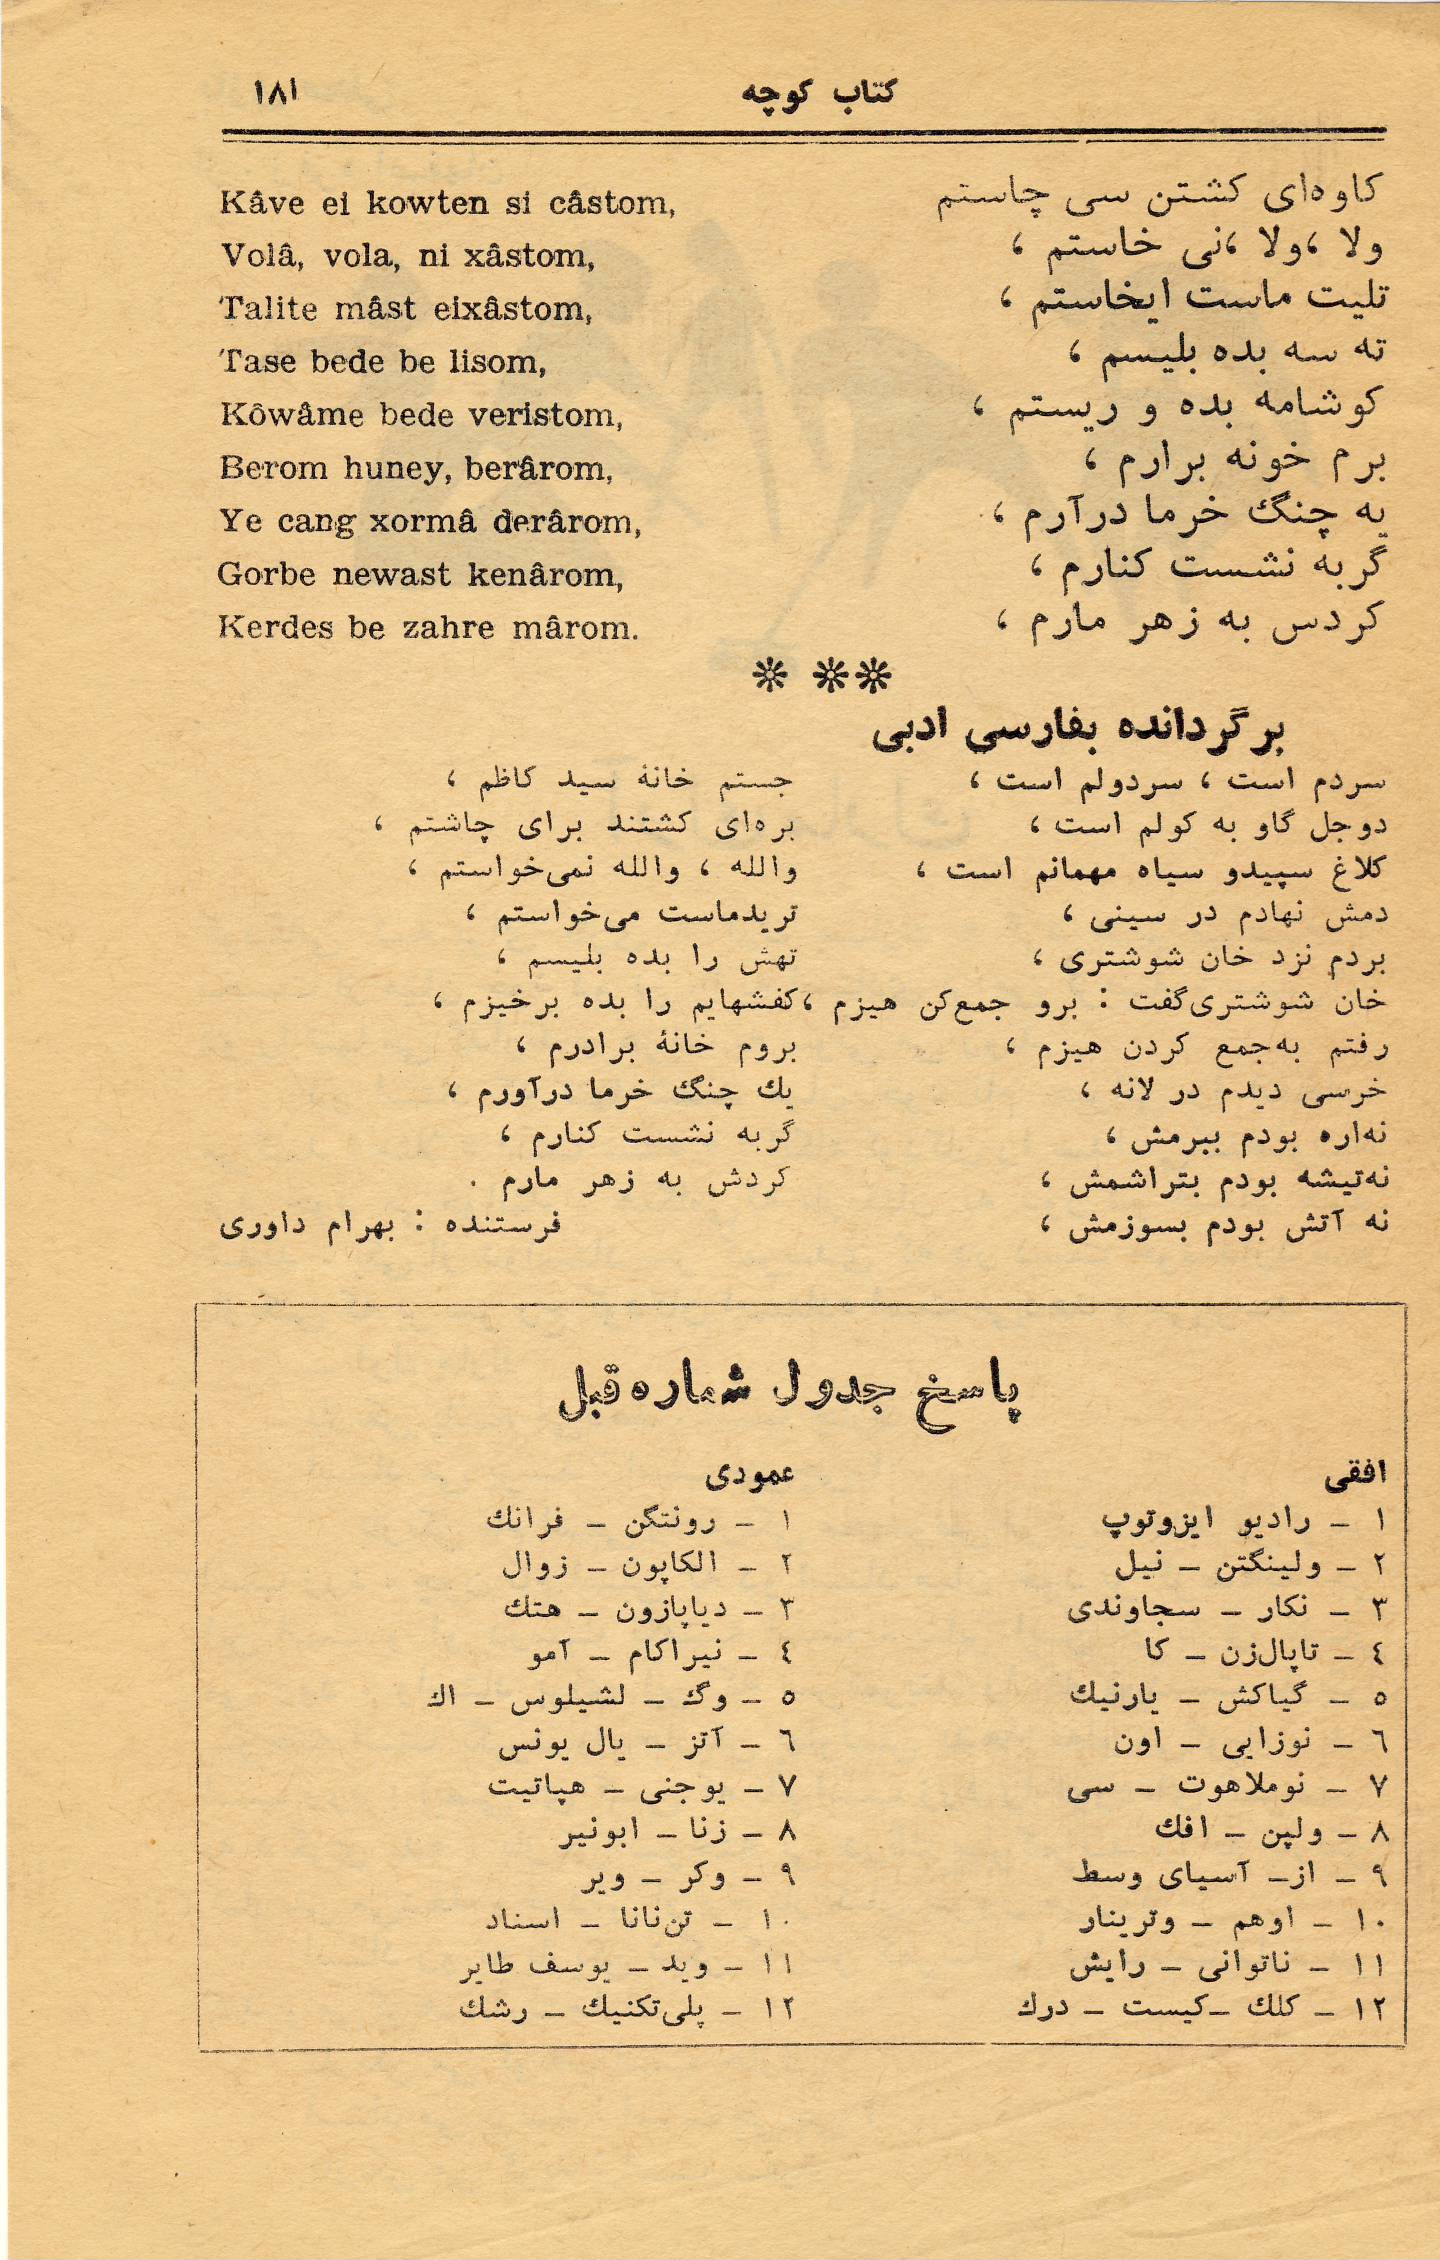 کتاب کوچه
١٨١
کاوه‌ای کشتن سی چاستم
ولا ،ولا ،نی خاستم ،
تلیت ماست ایخاستم ،
ته سه بده بلیسم ،
کوشامه بده و ریستم ،
برم خونه برارم ،
یه چنگ خرما درآرم ،
گربه نشست کنارم ،
کردس به زهر مارم ،
Kâve ei kowten si câstom,
Volâ, vola, ni xâstom,
Talite mâst eixâstom,
Tase bede be lisom,
Kôwâme bede veristom,
Berom huney, berârom,
Ye cang xormâ derârom,
Gorbe newast kenârom,
Kerdes be zahre mârom.
برگردانده بفارسی ادبی
سردم است ، سردولم است ،
دوجل گاو به کولم است ،
کلاغ سپیدو سیاه مهمانم است ،
دمش نهادم در سینی ،
بردم نزد خان شوشتری ،
خان شوشتری‌گفت : برو جمع‌کن هیزم ،
رفتم به‌جمع کردن هیزم ،
خرسی دیدم در لانه ،
نه‌اره بودم ببرمش ،
نه‌تیشه بودم بتراشمش ،
نه آتش بودم بسوزمش ،
جستم خانهٔ سید کاظم ،
بره‌ای کشتند برای چاشتم ،
والله ، والله نمی‌خواستم ،
تریدماست می‌خواستم ،
تهش را بده بلیسم ،
کفشهایم را بده برخیزم ،
بروم خانهٔ برادرم ،
یك چنگ خرما درآورم ،
گربه نشست کنارم ،
کردش به زهر مارم .
فرستنده : بهرام داوری
پاسخ جدول شماره قبل
افقی
١ – رادیو ایزوتوپ
٢ – ولینگتن – نیل
٣ – نکار – سجاوندی
٤ – تاپال‌زن – کا
٥ – گیاکش – یارنیك
٦ – نوزایی – اون
٧ – نوملاهوت – سی
٨ – ولپن – افك
٩ – از– آسیای وسط
١٠ – اوهم – وترینار
١١ – ناتوانی – رایش
١٢ – کلك –کیست – درك
عمودی
١ – رونتگن – فرانك
٢ – الکاپون – زوال
٣ – دیاپازون – هتك
٤ – نیراکام – آمو
٥ – وگ – لشیلوس – اك
٦ – آتز – یال یونس
٧ – یوجنی – هپاتیت
٨ – زنا – ابونیر
٩ – وکر – ویر
١٠ – تن‌نانا – اسناد
١١ – وید – یوسف طایر
١٢ – پلی‌تکنیك – رشك